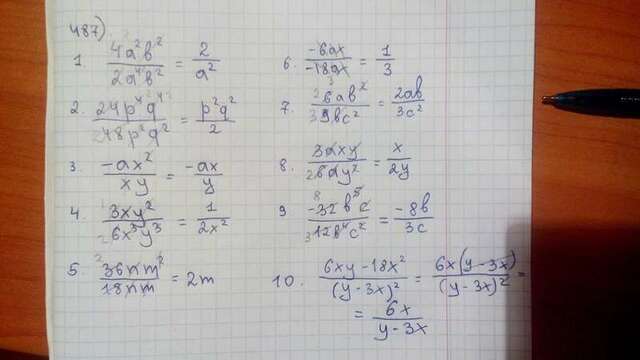 487)
1. 4a²b² / 2a⁴b² = 2 / a²
2. 24p⁴q⁴ / 48p²q² = p²q² / 2
3. -ax² / xy = -ax / y
4. 3xy² / 6x³y³ = 1 / 2x²
5. 36nm² / 18nm = 2m
6. -6ax / -18ax = 1 / 3
7. 6ab² / 9bc² = 2ab / 3c²
8. 3axy / 6ay² = x / 2y
9 -32b⁵c / 12b⁴c² = -8b / 3c
10. 6xy - 18x² / (y - 3x)² = 6x(y - 3x) / (y - 3x)² =
= 6x / y - 3x